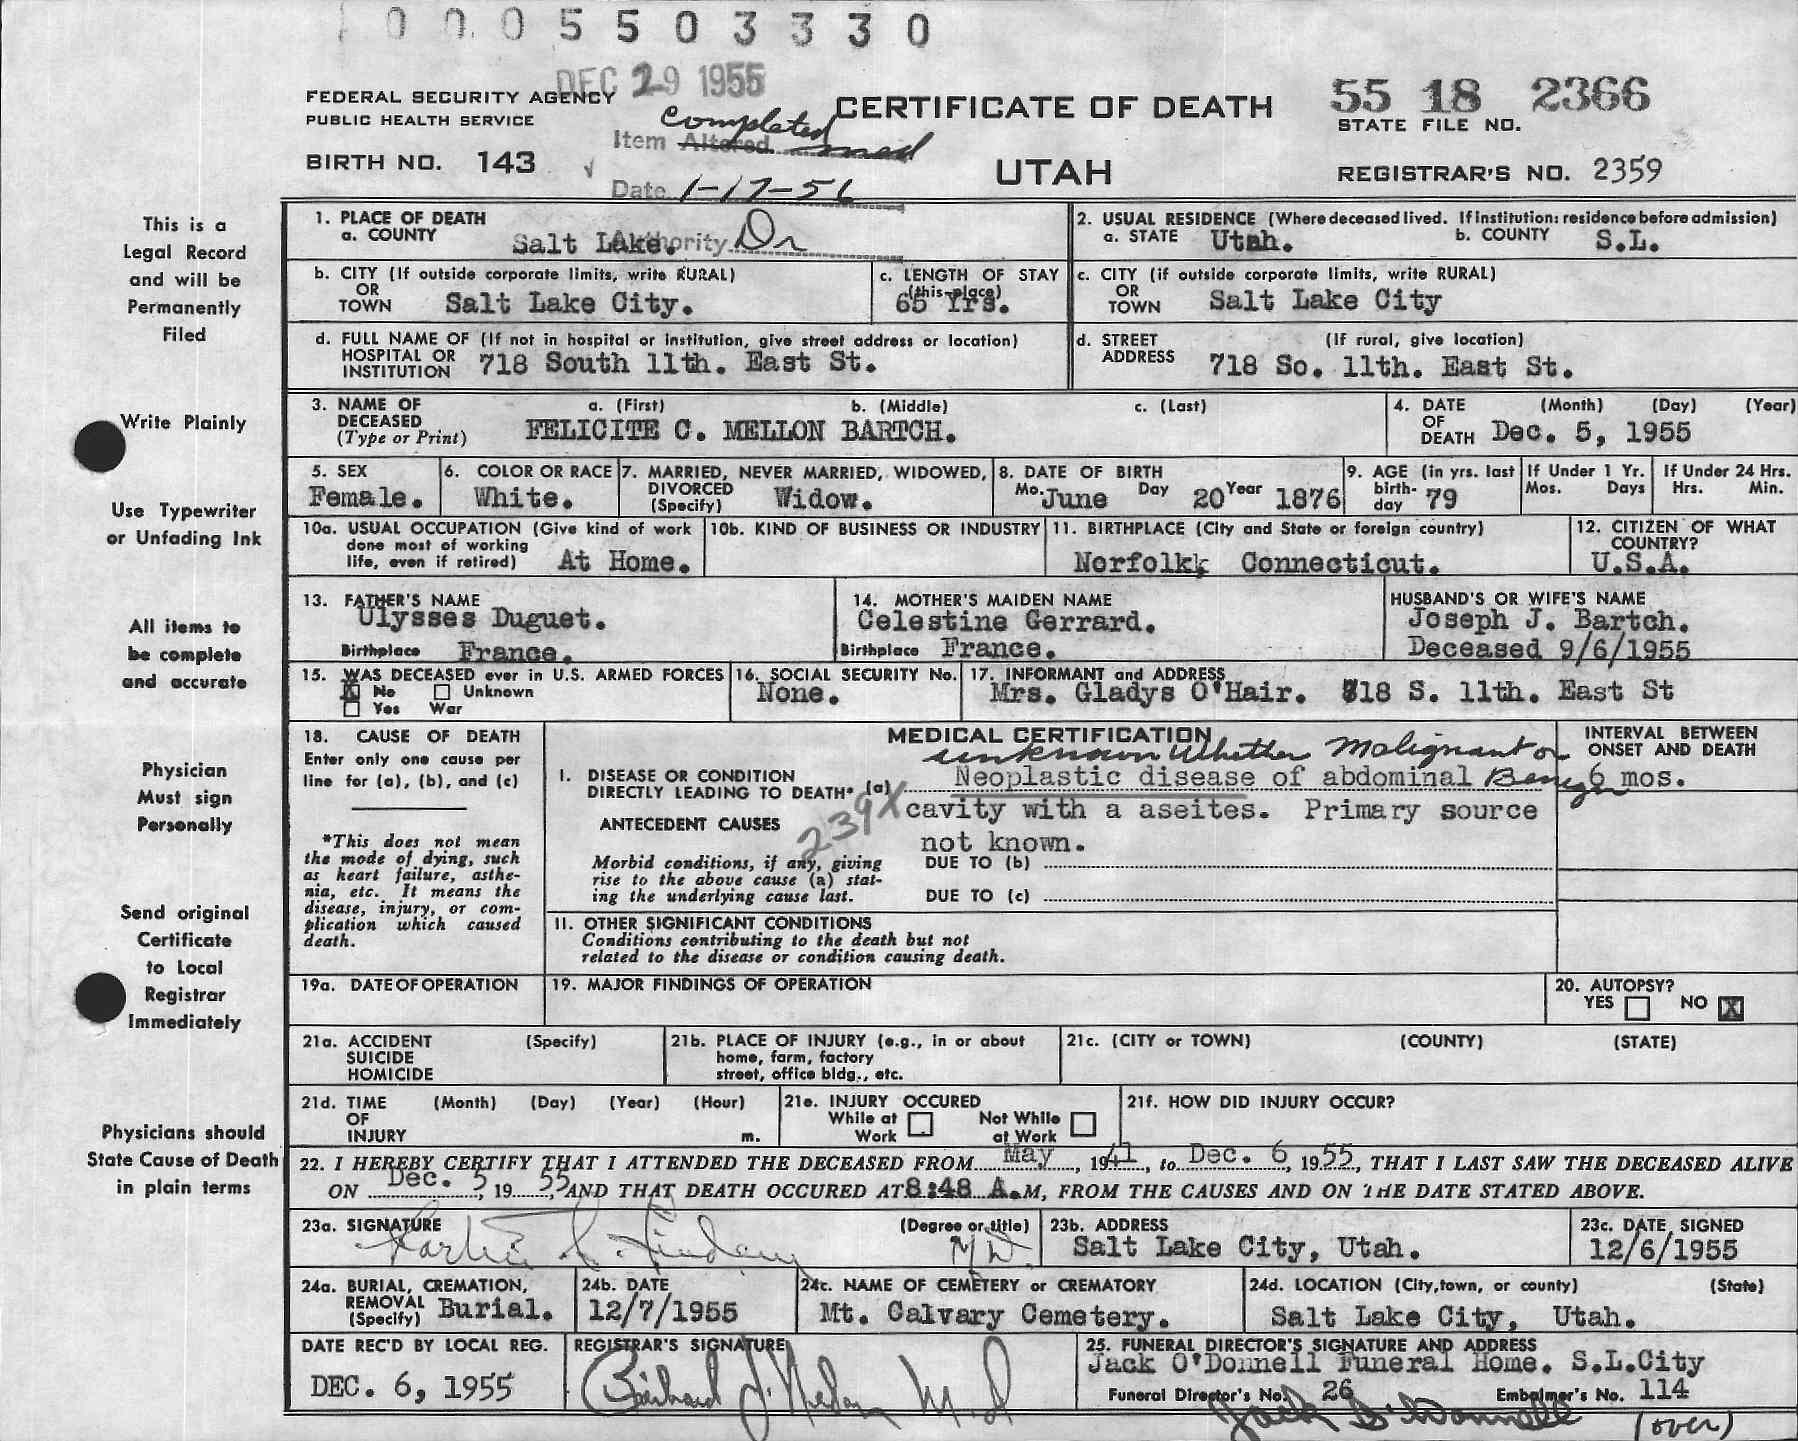 0 0 0 5 5 0 3 3 3 0
DEC 29 1955
FEDERAL SECURITY AGENCY
PUBLIC HEALTH SERVICE
BIRTH NO. 143
Completed
Item Altered med
Date 1-17-56
Authority Dr
CERTIFICATE OF DEATH
UTAH
55 18 2366
STATE FILE NO.
REGISTRAR'S NO. 2359
This is a
Legal Record
and will be
Permanently
Filed
Write Plainly
Use Typewriter
or Unfading Ink
All items to
be complete
and accurate
Physician
Must sign
Personally
Send original
Certificate
to Local
Registrar
Immediately
Physicians should
State Cause of Death
in plain terms
1. PLACE OF DEATH
a. COUNTY Salt Lake.
2. USUAL RESIDENCE (Where deceased lived. If institution: residence before admission)
a. STATE Utah. b. COUNTY S.L.
b. CITY (If outside corporate limits, write RURAL)
OR
TOWN Salt Lake City.
c. LENGTH OF STAY
(this place)
65 Yrs.
c. CITY (if outside corporate limits, write RURAL)
OR
TOWN Salt Lake City
d. FULL NAME OF (If not in hospital or institution, give street address or location)
HOSPITAL OR
INSTITUTION 718 South 11th. East St.
d. STREET (If rural, give location)
ADDRESS 718 So. 11th. East St.
3. NAME OF a. (First) b. (Middle) c. (Last)
DECEASED
(Type or Print) FELICITE C. MELLON BARTCH.
4. DATE (Month) (Day) (Year)
OF
DEATH Dec. 5, 1955
5. SEX
Female.
6. COLOR OR RACE
White.
7. MARRIED, NEVER MARRIED, WIDOWED,
DIVORCED
(Specify) Widow.
8. DATE OF BIRTH
Mo. June Day 20 Year 1876
9. AGE (in yrs. last
birth-
day 79
If Under 1 Yr.
Mos. Days
If Under 24 Hrs.
Hrs. Min.
10a. USUAL OCCUPATION (Give kind of work
done most of working
life, even if retired) At Home.
10b. KIND OF BUSINESS OR INDUSTRY
11. BIRTHPLACE (City and State or foreign country)
Norfolk Connecticut.
12. CITIZEN OF WHAT
COUNTRY?
U.S.A.
13. FATHER'S NAME
Ulysses Duguet.
Birthplace France.
14. MOTHER'S MAIDEN NAME
Celestine Gerrard.
Birthplace France.
HUSBAND'S OR WIFE'S NAME
Joseph J. Bartch.
Deceased 9/6/1955
15. WAS DECEASED ever in U.S. ARMED FORCES
X No Unknown
Yes War
16. SOCIAL SECURITY No.
None.
17. INFORMANT and ADDRESS
Mrs. Gladys O'Hair. 718 S. 11th. East St
18. CAUSE OF DEATH
Enter only one cause per
line for (a), (b), and (c)
*This does not mean
the mode of dying, such
as heart failure, asthe-
nia, etc. It means the
disease, injury, or com-
plication which caused
death.
MEDICAL CERTIFICATION
unknown whether Malignant or
Benign
INTERVAL BETWEEN
ONSET AND DEATH
6 mos.
I. DISEASE OR CONDITION
DIRECTLY LEADING TO DEATH* (a) Neoplastic disease of abdominal
cavity with a aseites. Primary source
not known.
239X
ANTECEDENT CAUSES
Morbid conditions, if any, giving
rise to the above cause (a) stat-
ing the underlying cause last.
DUE TO (b)
DUE TO (c)
II. OTHER SIGNIFICANT CONDITIONS
Conditions contributing to the death but not
related to the disease or condition causing death.
19a. DATE OF OPERATION
19. MAJOR FINDINGS OF OPERATION
20. AUTOPSY?
YES NO X
21a. ACCIDENT (Specify)
SUICIDE
HOMICIDE
21b. PLACE OF INJURY (e.g., in or about
home, farm, factory
street, office bldg., etc.
21c. (CITY or TOWN) (COUNTY) (STATE)
21d. TIME (Month) (Day) (Year) (Hour)
OF
INJURY m.
21e. INJURY OCCURED
While at Work
Not While at Work
21f. HOW DID INJURY OCCUR?
22. I HEREBY CERTIFY THAT I ATTENDED THE DECEASED FROM May, 1941, to Dec. 6, 1955, THAT I LAST SAW THE DECEASED ALIVE
ON Dec. 5, 19 55, AND THAT DEATH OCCURED AT 8:48 A.M, FROM THE CAUSES AND ON THE DATE STATED ABOVE.
23a. SIGNATURE (Degree or title)
M.D.
23b. ADDRESS
Salt Lake City, Utah.
23c. DATE SIGNED
12/6/1955
24a. BURIAL, CREMATION,
REMOVAL
(Specify) Burial.
24b. DATE
12/7/1955
24c. NAME OF CEMETERY or CREMATORY
Mt. Calvary Cemetery.
24d. LOCATION (City, town, or county) (State)
Salt Lake City, Utah.
DATE REC'D BY LOCAL REG.
DEC. 6, 1955
REGISTRAR'S SIGNATURE
M.D
25. FUNERAL DIRECTOR'S SIGNATURE AND ADDRESS
Jack O'Donnell Funeral Home. S.L.City
Funeral Director's No. 26 Embalmer's No. 114
Jack O'Donnell
(over)